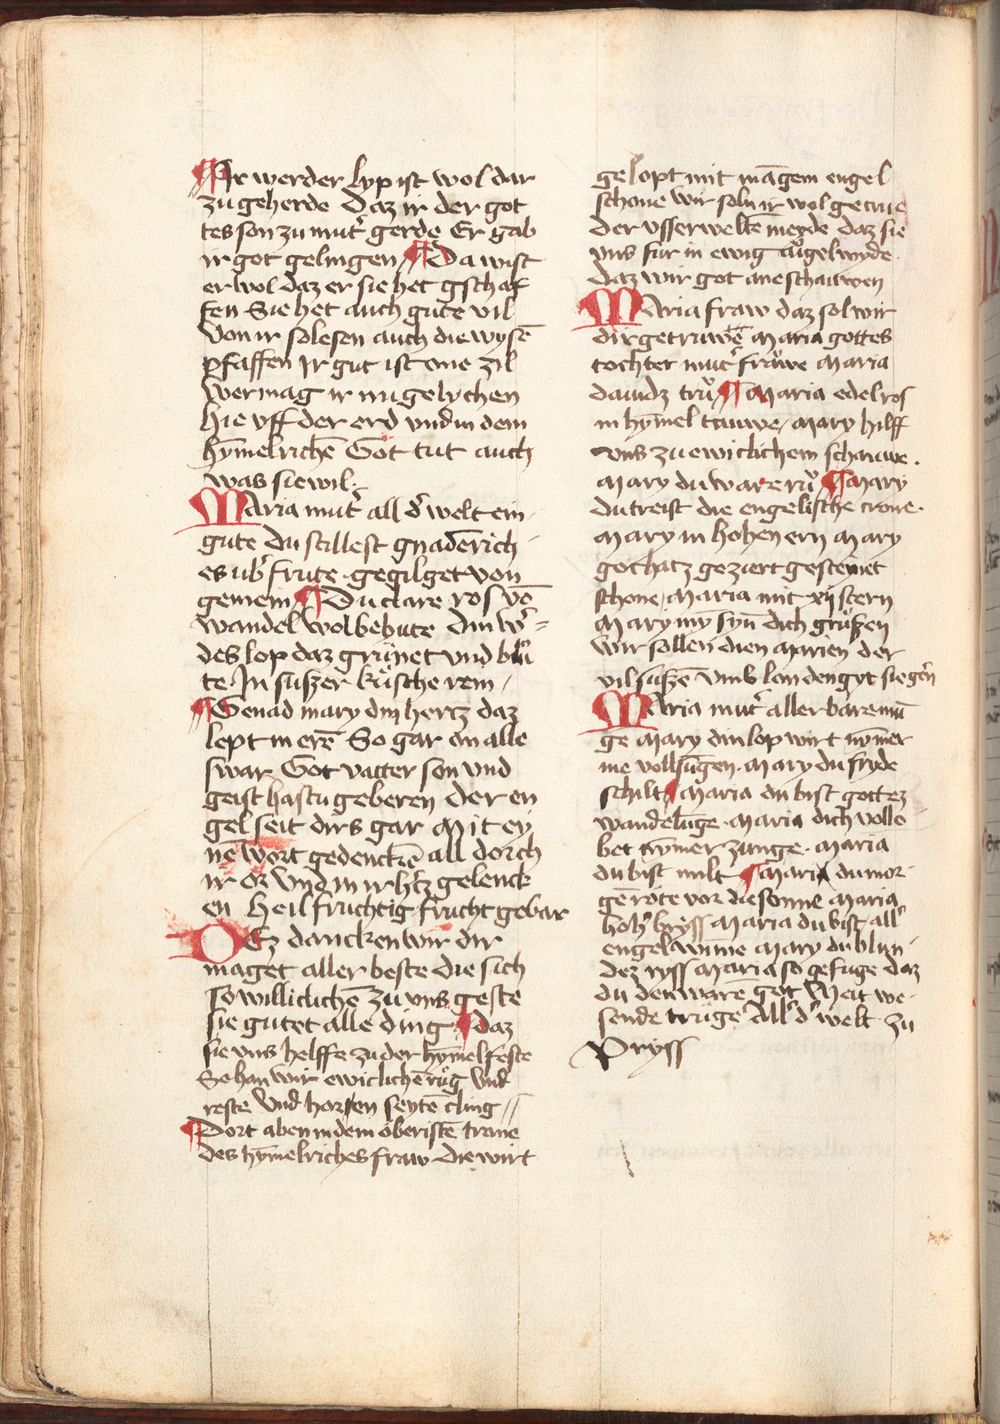 ¶ Ir werder lyp ist wol dar
zu geherde Daz ir der got
tes son zu mut͛ gerde Er gab
ir got gelingen ¶ Da wist
er wol daz er sie het gschaf
fen Sie het auch gute vil
von ir so lesen auch die wysē
pfaffen Ir gut ist one zil
Wer mag ir nu gelychen
hie vff der erd vnd in dem
hȳmelrichē Got tut auch
was sie wil
Maria mut͛ all d͛ welt ein
gute Du stillest gnadēᷣrich
es ub͛ frute gegilget von
gemein ¶ Du clare ros vō
wandel wol behute Din w͛
des lop daz grünet vnd blů
te In suszer kůsche rein
¶ Genad mary din hertz daz
lept in erē So gar on alle
swar Got vatter son vnd
geist hastu geberen Der en
gel seit dirs gar Mit ey
nē wort gedenckē all dorch
ir or vnd in ir h͛tz gelenck
en Heil fruchtig frucht gebar
Dez dancken wir dir
maget aller beste die sich
so williclichē zu vns geste
sie gutet alle ding ¶ daz
sie vns helffe zu der hȳmel feste
So han wir ewiclichē růg vnd
reste Vnd horten seytē cling
¶ Dort aben in dem oberistē trone
des hȳmelriches fraw die wirt
gelopt mit māgem engel
schone wir soln ir wol getrue
der vsserweltē meyde daz sie
vns fur in ewig augelweyde
daz wir got ane schauwen
Maria fraw daz sol wir
dir getruwē Maria gottes
tochter mut͛ frauwe Maria
dauidz trů ¶ Maria edel ros
in hȳmel tauwe Mary hilff
vns zu ewiclichem schauwe
Mary du ware rů ¶ Mary
du treist die engelische crone
Mary in hohen ern Mary
gothatz geziert gesteinet
schone Maria mit xij stern
Mary my̅ syn̅ dich grůszen
wir sollen dien Marien der
vil suszē vmb lon den gyt sie gern̄
Maria mut͛ aller barmū
ge Mary din lop wirt nȳmer
me vollsūgen Mary du fryde
schilt ¶ Maria du bist gottez
wandelūge Maria dich vollo
bet nymer zunge Maria
du bist milt ¶ Maria du mor
gē rote vor die sonne Maria
holtz bryss Maria du bist all͛
engel wunne Mary du blun
dez ryss Maria so gefuge daz
du den warē got Meit we
sende truge All͛ d͛ welt zu
Pryss